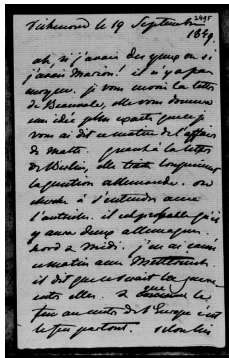 2495
Richmond le 19 Septembre
1849.
ah, si j'avais des yeux ou si
j'avais Marion! il n'y a pas
moyen. je vous envoie la lettre
de Beauvale, elle vous donnera
une idée plus exacte que je
vous ai dit ce matin de l'affaire
de Malte. quant à la lettre
de Berlin, elle traite longuement
la question allemande. on
cherche à s'entendre avec
l'autriche. il est probable qu'il
y aura deux allemagnes.
nord & midi. j'ai causé
ce matin avec Metternich
il dit que ce serait la guerre
entre elles. &
feu au centre de l'Europe c'est
le feu partout. selon lui